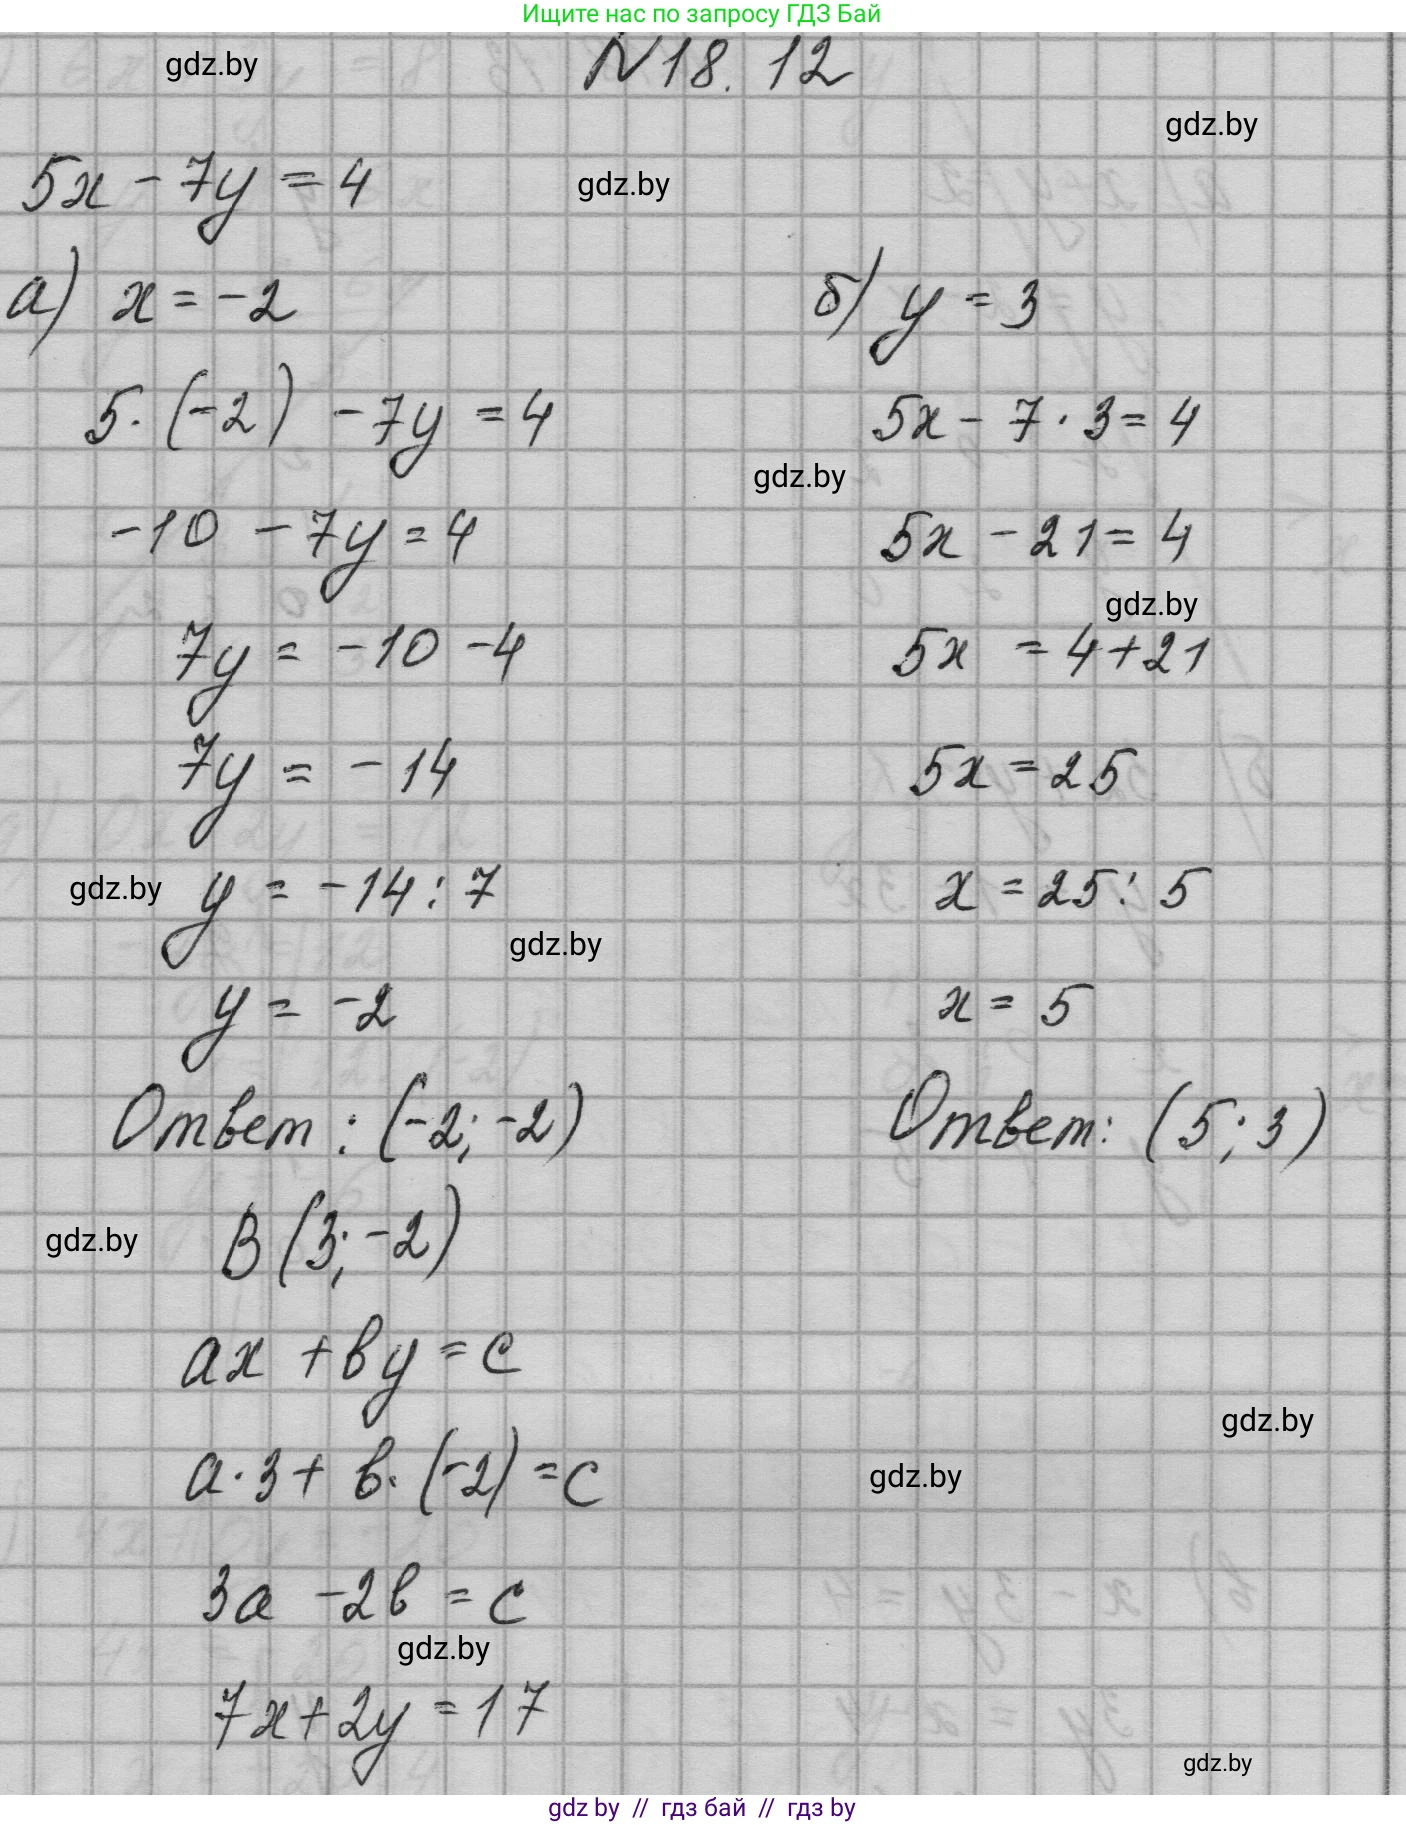 Ищите нас по запросу ГДЗ Бай
N18.12
gdz.by
gdz.by
5x - 7y = 4
gdz.by
а) x = -2
5·(-2) - 7y = 4
-10 - 7y = 4
7y = -10 - 4
7y = -14
gdz.by
y = -14 : 7
gdz.by
y = -2
Ответ: (-2; -2)
б) y = 3
5x - 7·3 = 4
gdz.by
5x - 21 = 4
gdz.by
5x = 4+21
5x = 25
x = 25 : 5
x = 5
Ответ: (5; 3)
gdz.by
B(3; -2)
ax + by = c
gdz.by
a·3 + b·(-2) = c
gdz.by
3a - 2b = c
gdz.by
7x + 2y = 17
gdz.by
gdz by // гдз бай // гдз by